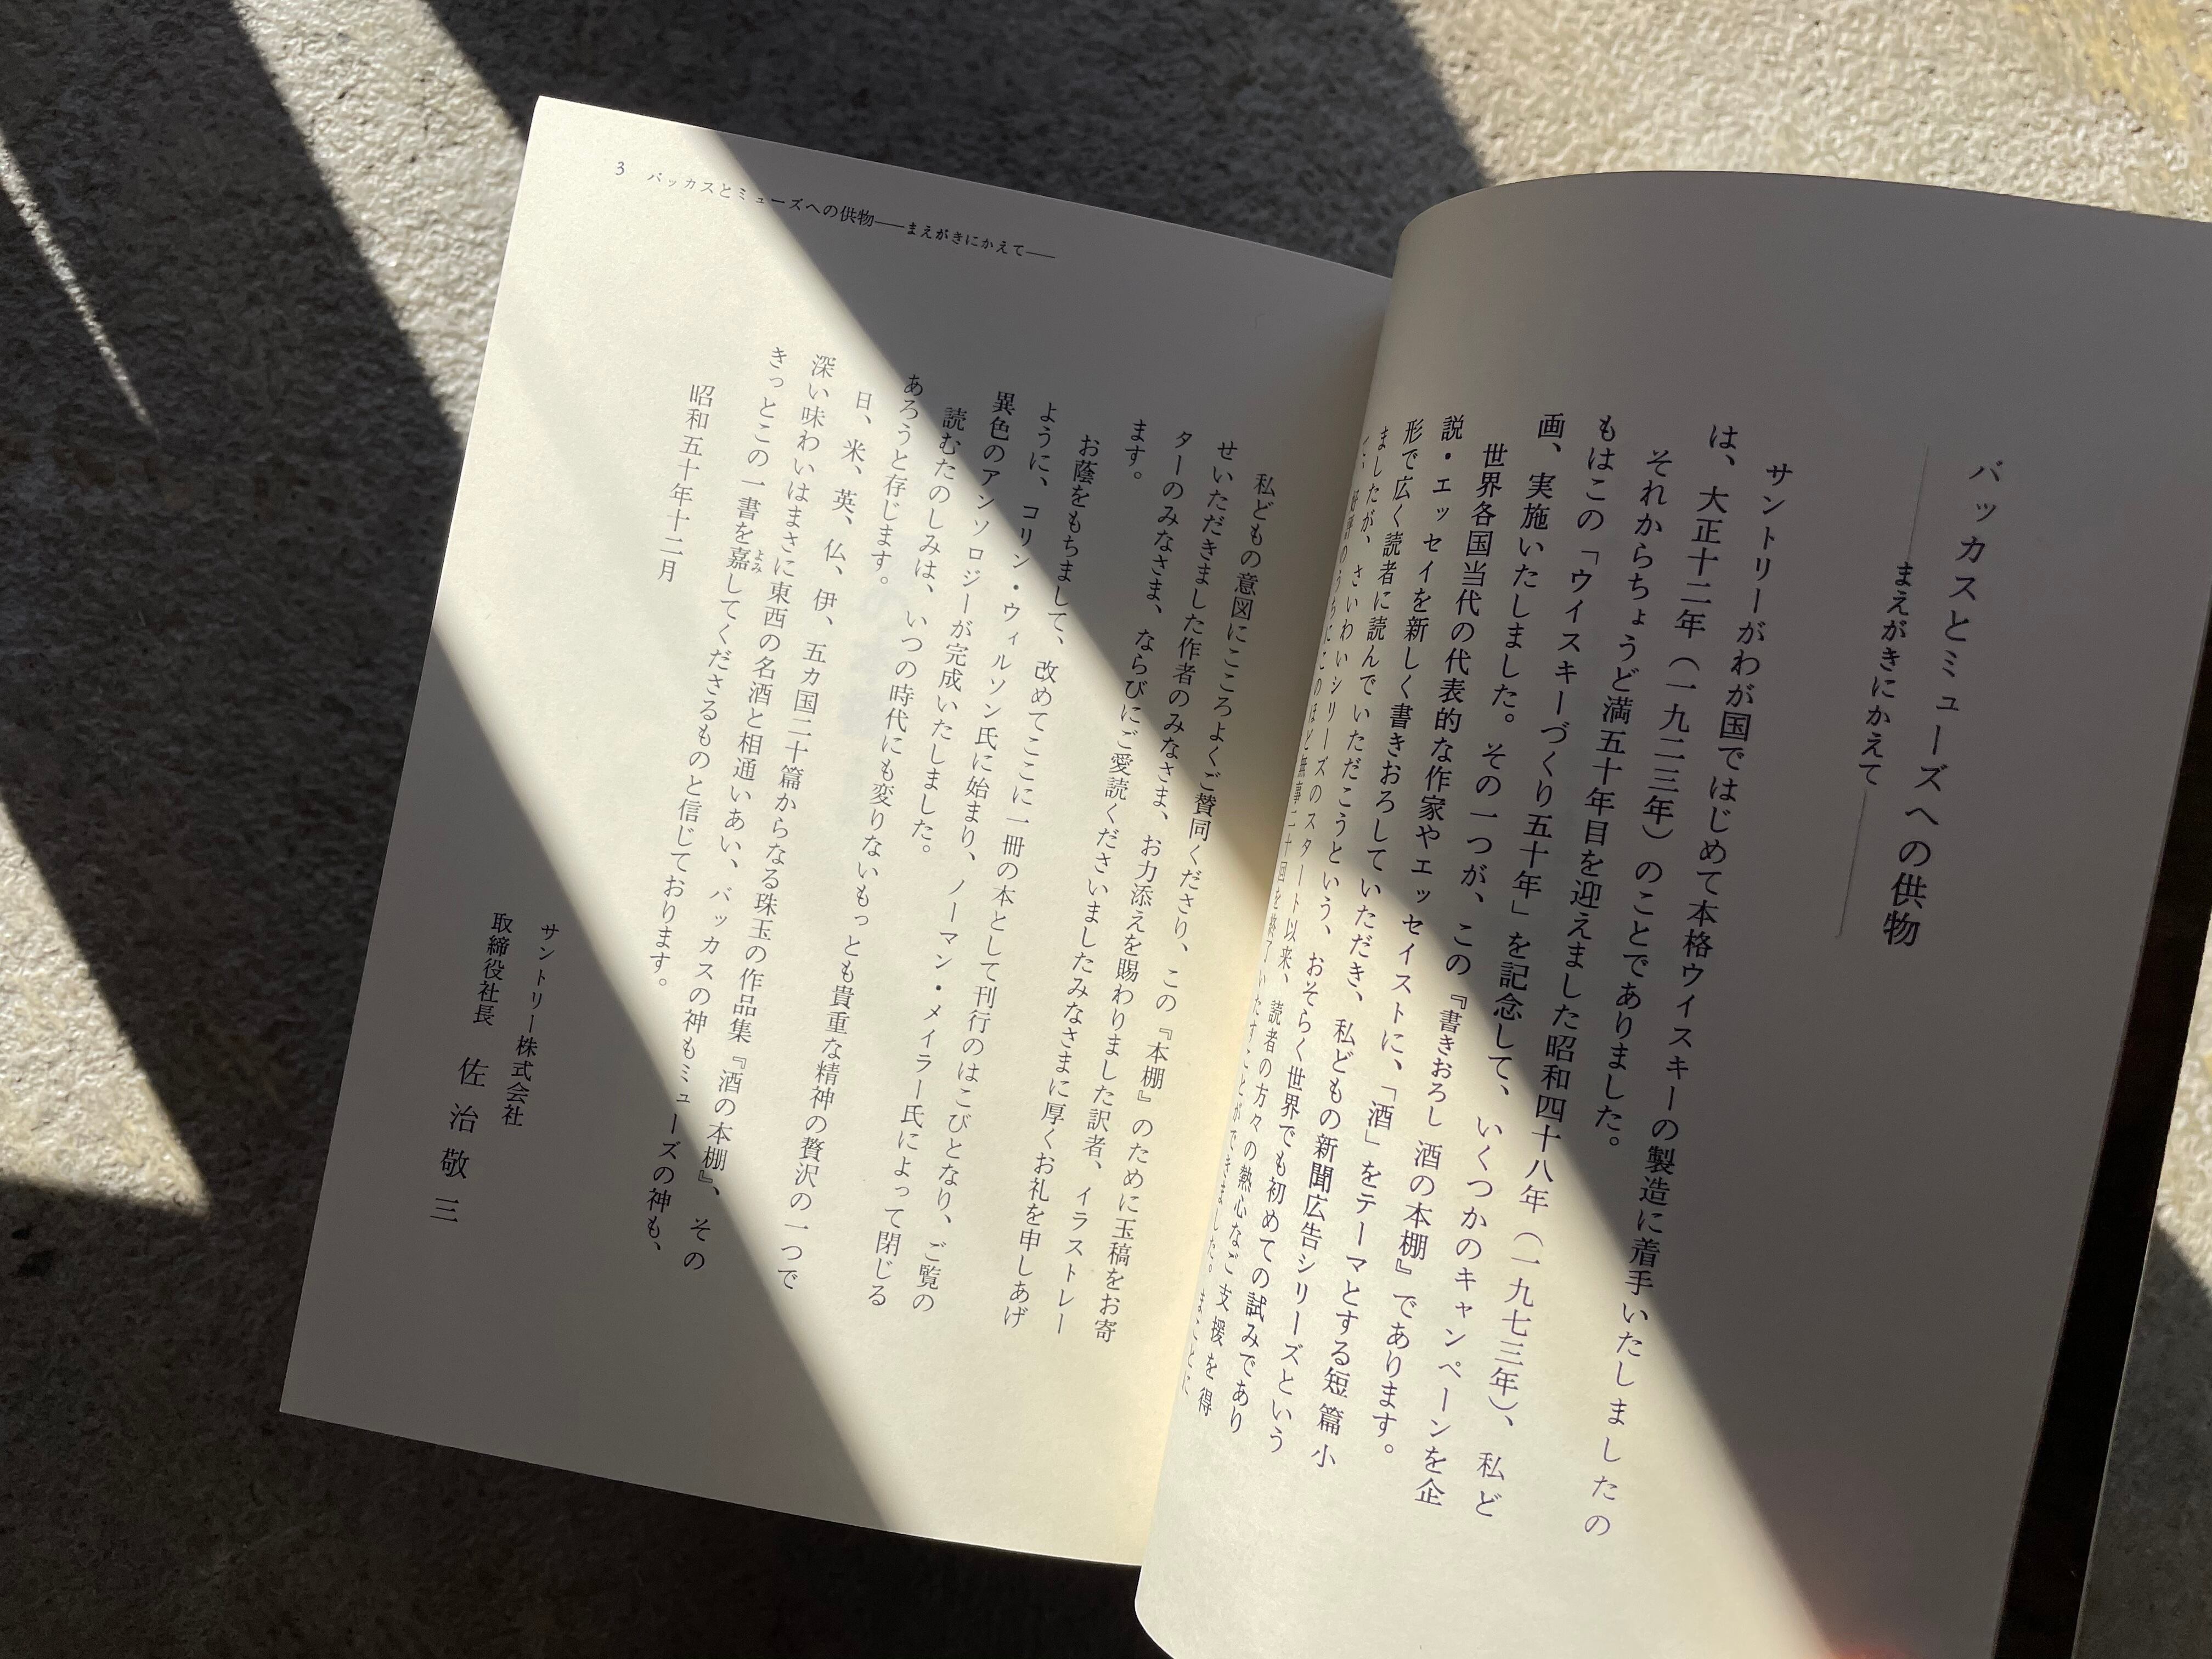 バッカスとミューズへの供物
――まえがきにかえて――
サントリーがわが国ではじめて本格ウイスキーの製造に着手いたしましたの
は、大正十二年（一九二三年）のことでありました。
それからちょうど満五十年目を迎えました昭和四十八年（一九七三年）、私ど
もはこの「ウイスキーづくり五十年」を記念して、いくつかのキャンペーンを企
画、実施いたしました。その一つが、この『書きおろし 酒の本棚』であります。
世界各国当代の代表的な作家やエッセイストに、「酒」をテーマとする短篇小
説・エッセイを新しく書きおろしていただき、私どもの新聞広告シリーズという
形で広く読者に読んでいただこうという、おそらく世界でも初めての試みであり
ましたが、さいわいシリーズのスタート以来、読者の方々の熱心なご支援を得
好評のうちにこのほど無事二十回を終了いたすことができました。まことに
3 バッカスとミューズへの供物――まえがきにかえて――
私どもの意図にこころよくご賛同くださり、この『本棚』のために玉稿をお寄
せいただきました作者のみなさま、お力添えを賜わりました訳者、イラストレー
ターのみなさま、ならびにご愛読くださいましたみなさまに厚くお礼を申しあげ
ます。
お蔭をもちまして、改めてここに一冊の本として刊行のはこびとなり、ご覧の
ように、コリン・ウィルソン氏に始まり、ノーマン・メイラー氏によって閉じる
異色のアンソロジーが完成いたしました。
読むたのしみは、いつの時代にも変りないもっとも貴重な精神の贅沢の一つで
あろうと存じます。
日、米、英、仏、伊、五カ国二十篇からなる珠玉の作品集『酒の本棚』、その
深い味わいはまさに東西の名酒と相通いあい、バッカスの神もミューズの神も、
きっとこの一書を嘉よみしてくださるものと信じております。
昭和五十年十二月
サントリー株式会社
取締役社長 佐治敬三